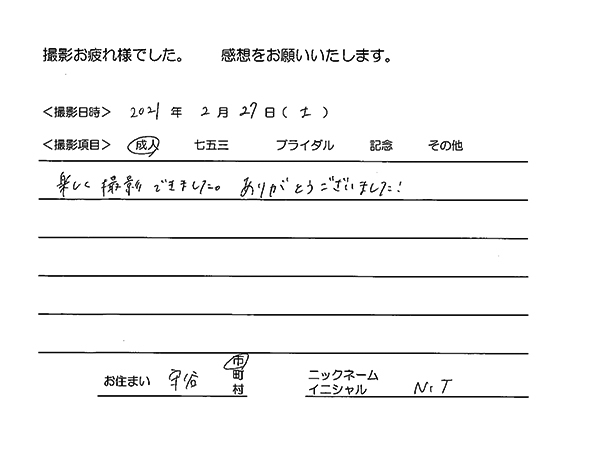 撮影お疲れ様でした。 感想をお願いいたします。
＜撮影日時＞ 2021 年 2 月 27 日 ( 土 )
＜撮影項目＞ 成人 七五三 ブライダル 記念 その他
楽しく撮影できました。ありがとうございました!
お住まい 守谷 市 町 村
ニックネーム イニシャル N.T